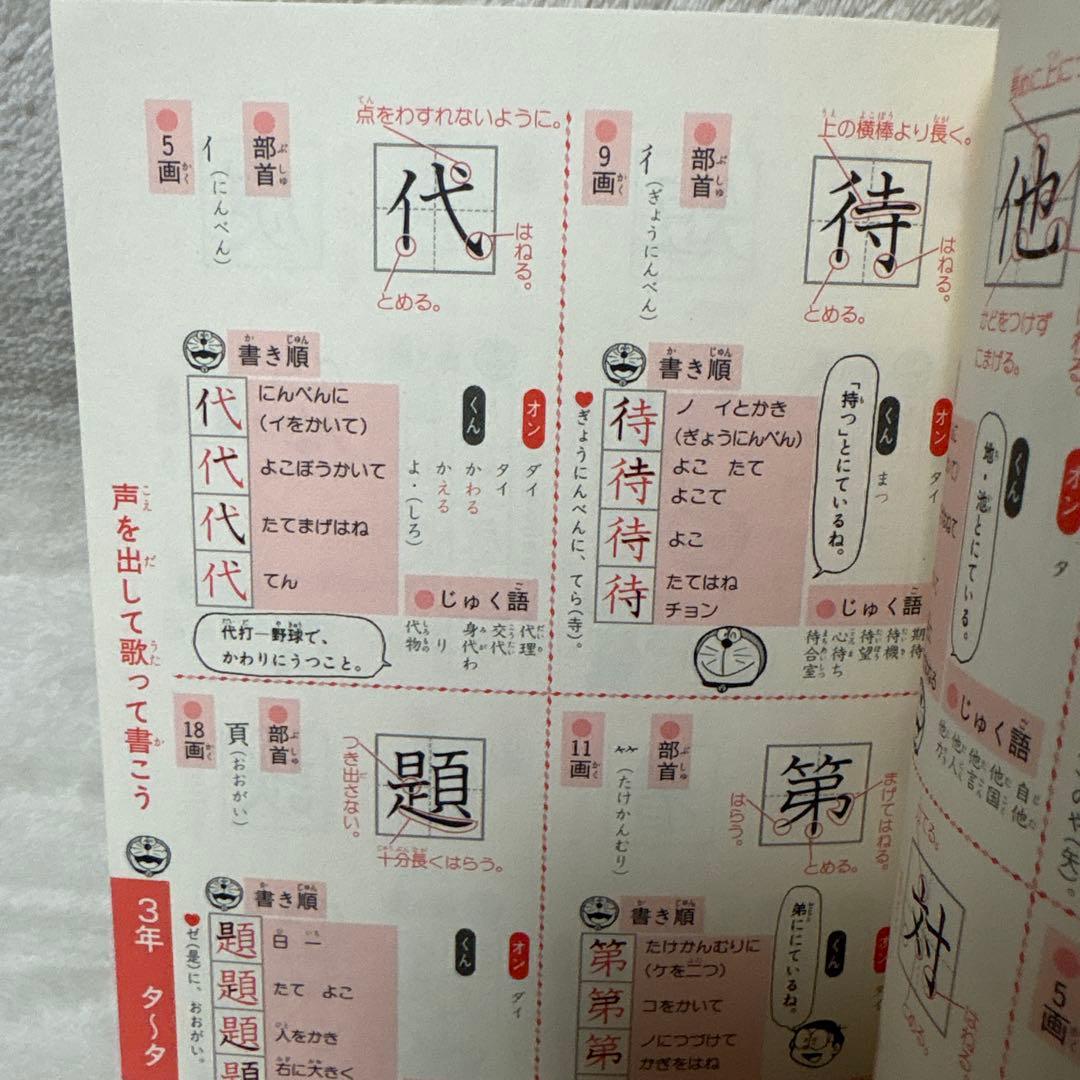 他
かどをつけず
にまげる。
くん
オン
タ
地・池とにている。
じゅく語
自他
他国
他言
他人
5画
上の横棒より長く。
待
はねる。
とめる。
部首
イ(ぎょうにんべん)
9画
書き順
待 ノ イとかき
(ぎょうにんべん)
待 よこ たて
よこて
待 よこ
待 たてはね
チョン
ぎょうにんべんに、てら(寺)。
「持つ」とにているね。
オン
タイ
くん
まつ
じゅく語
期待
待機
待望
心待ち
待合室
点をわすれないように。
代
はねる。
とめる。
部首
イ(にんべん)
5画
書き順
代 にんべんに
(イをかいて)
代 よこぼうかいて
代 たてまげはね
代 てん
オン
ダイ
タイ
くん
かわる
かえる
よ・(しろ)
じゅく語
代理
交代
身代わり
代物
代打―野球で、
かわりにうつこと。
第
まげてはねる。
とめる。
はらう。
部首
(たけかんむり)
11画
書き順
第 たけかんむりに
(ケを二つ)
第 コをかいて
第 ノにつづけて
かぎをはね
弟ににているね。
オン
ダイ
くん
題
つき出さない。
十分長くはらう。
部首
頁(おおがい)
18画
書き順
題 日 一
題 たて よこ
題 人をかき
題 右に大きく
ゼ(是)に、おおがい。
オン
ダイ
くん
声を出して歌って書こう
3年 タ〜タ